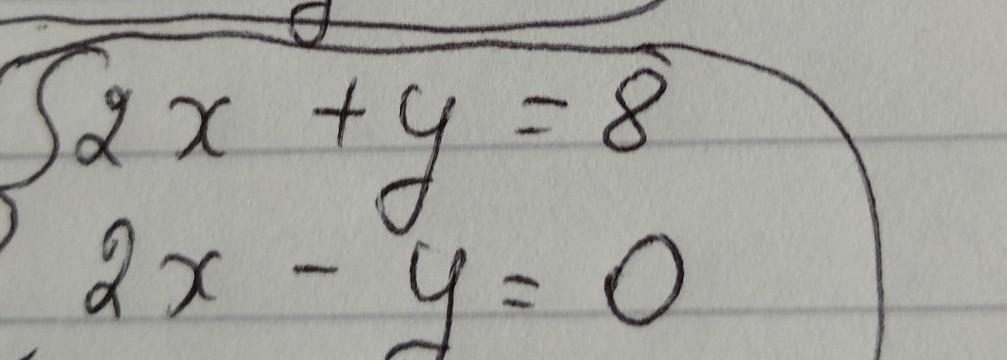 2x + y = 8
2x - y = 0